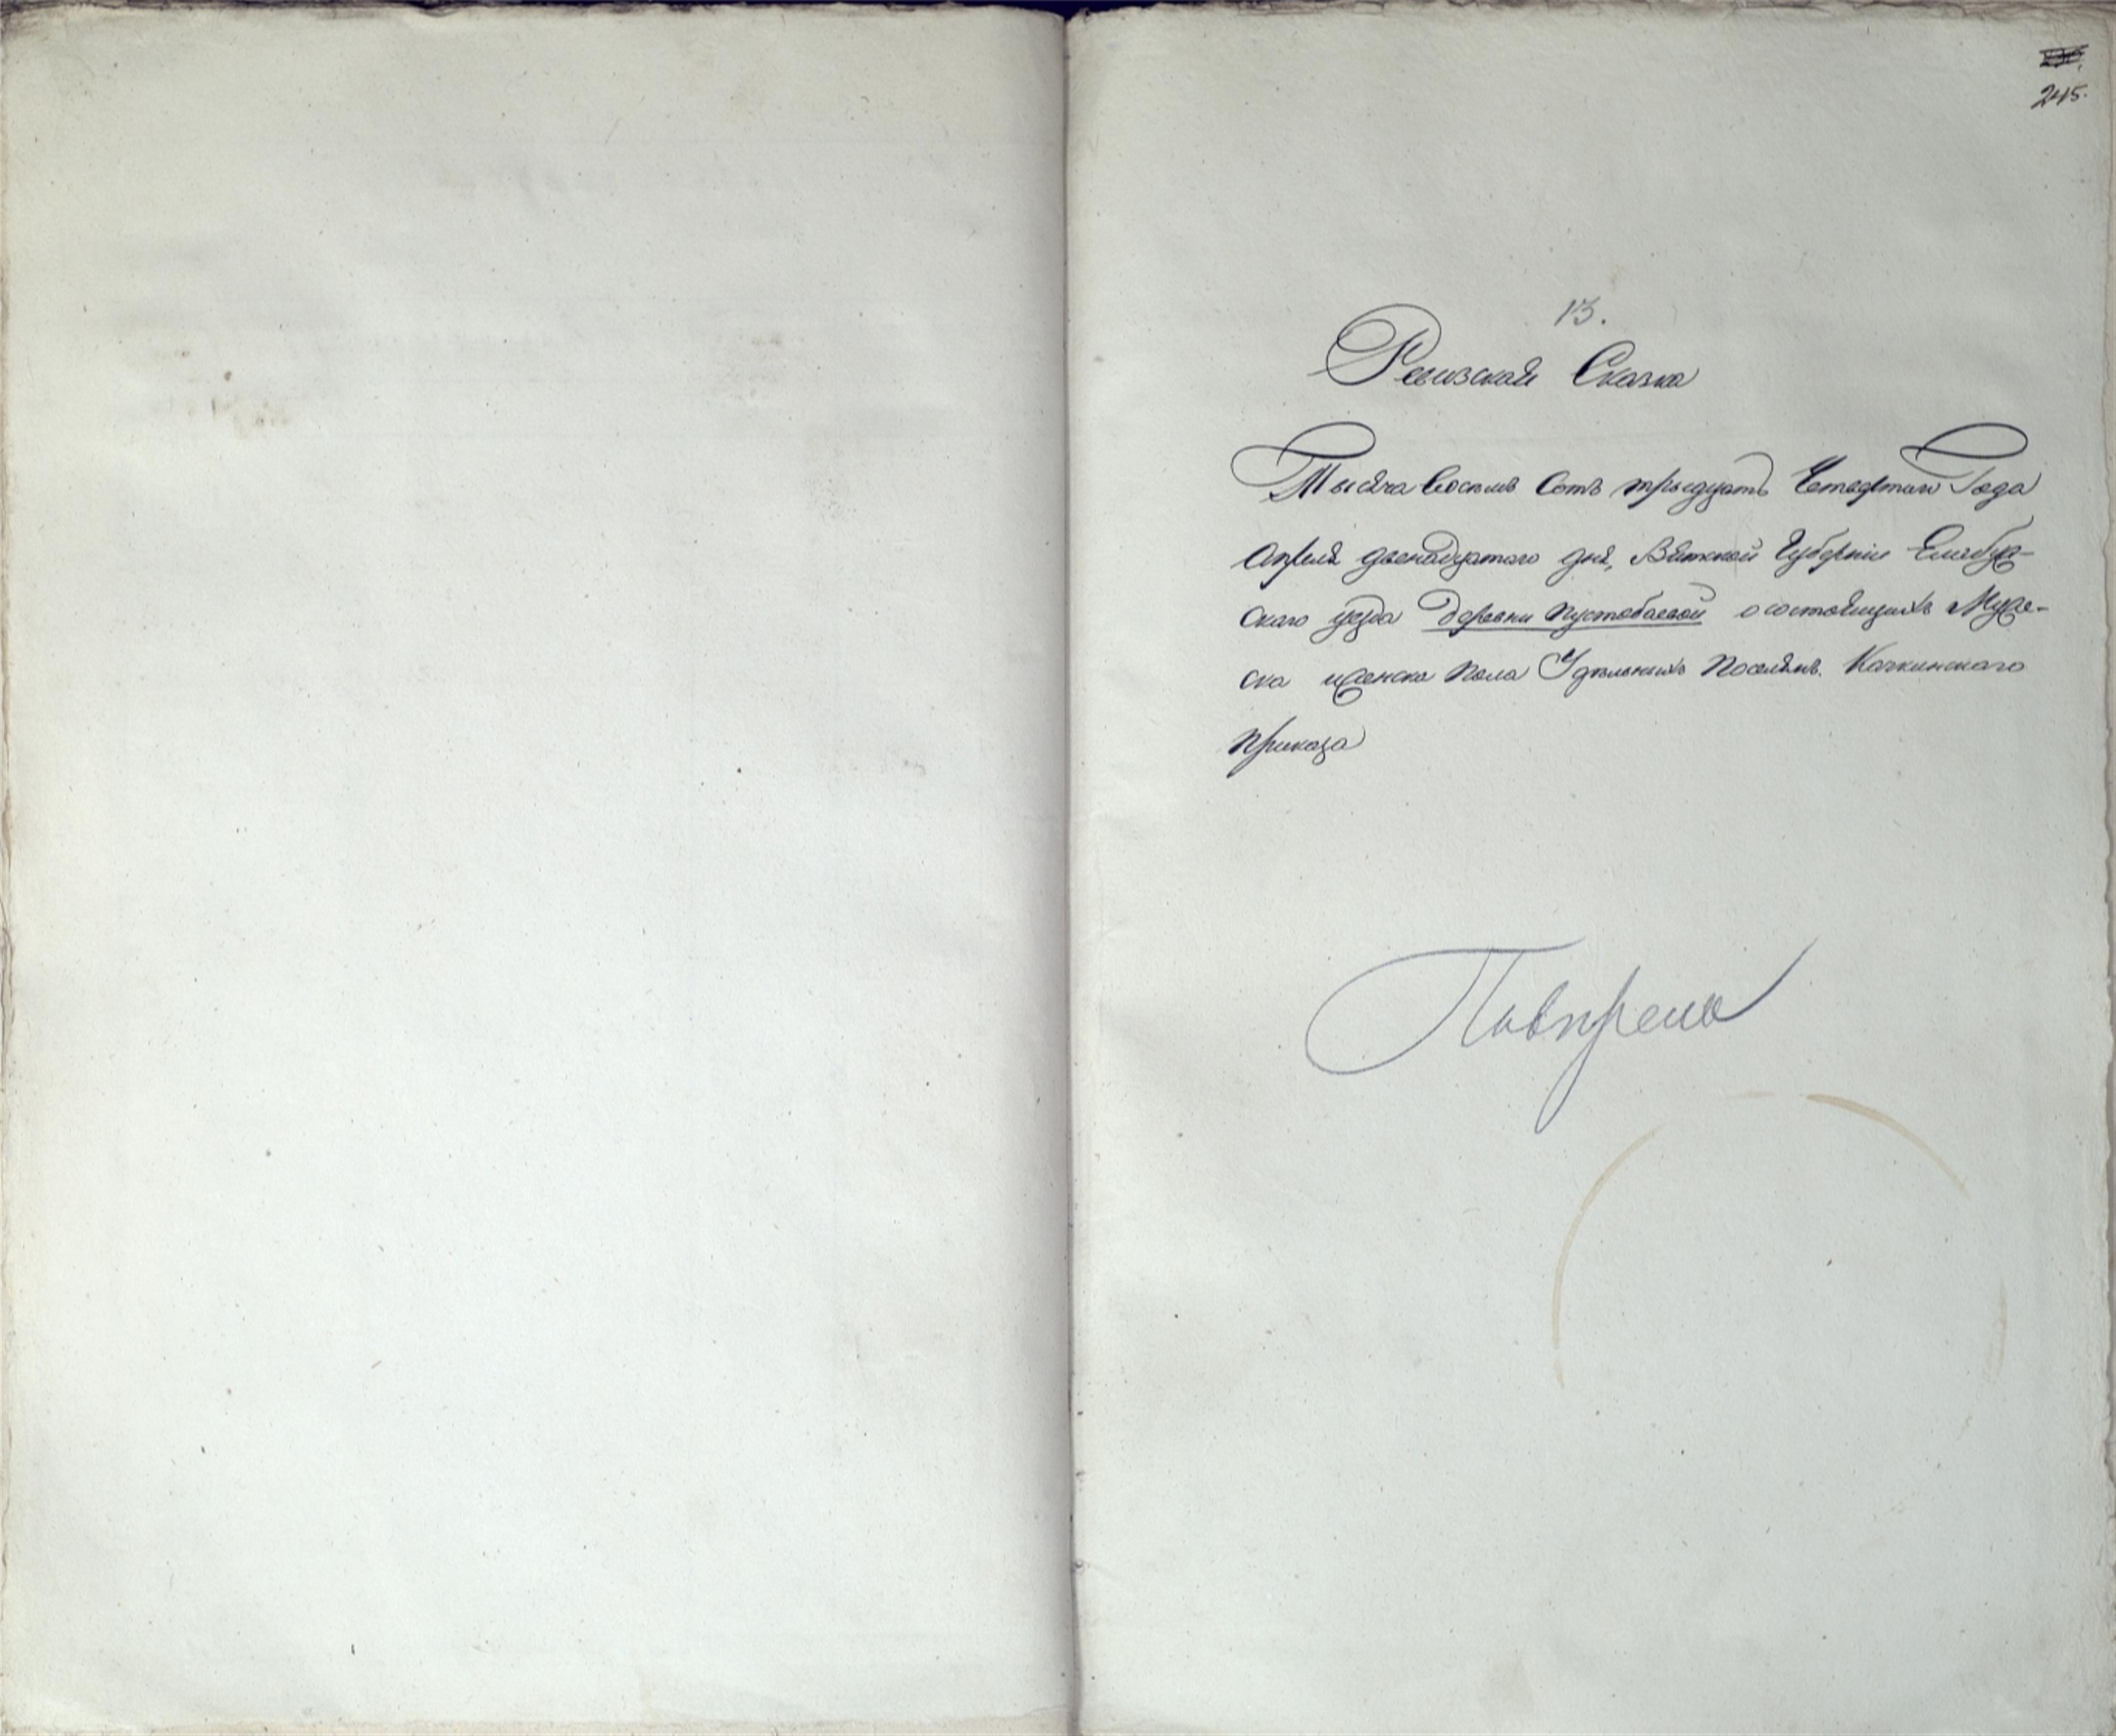 245.
13.
Ревизская Сказка
Тысяча Восемь Сотъ тридцать Четвертаго Года
Апреля двенадцатаго дня, Вятской Губернии Елабуж-
скаго уезда деревни Пустобаевой о состоящихъ Муже-
ска и женска Пола Удельныхъ Поселянъ. Качкинскаго
Приказа